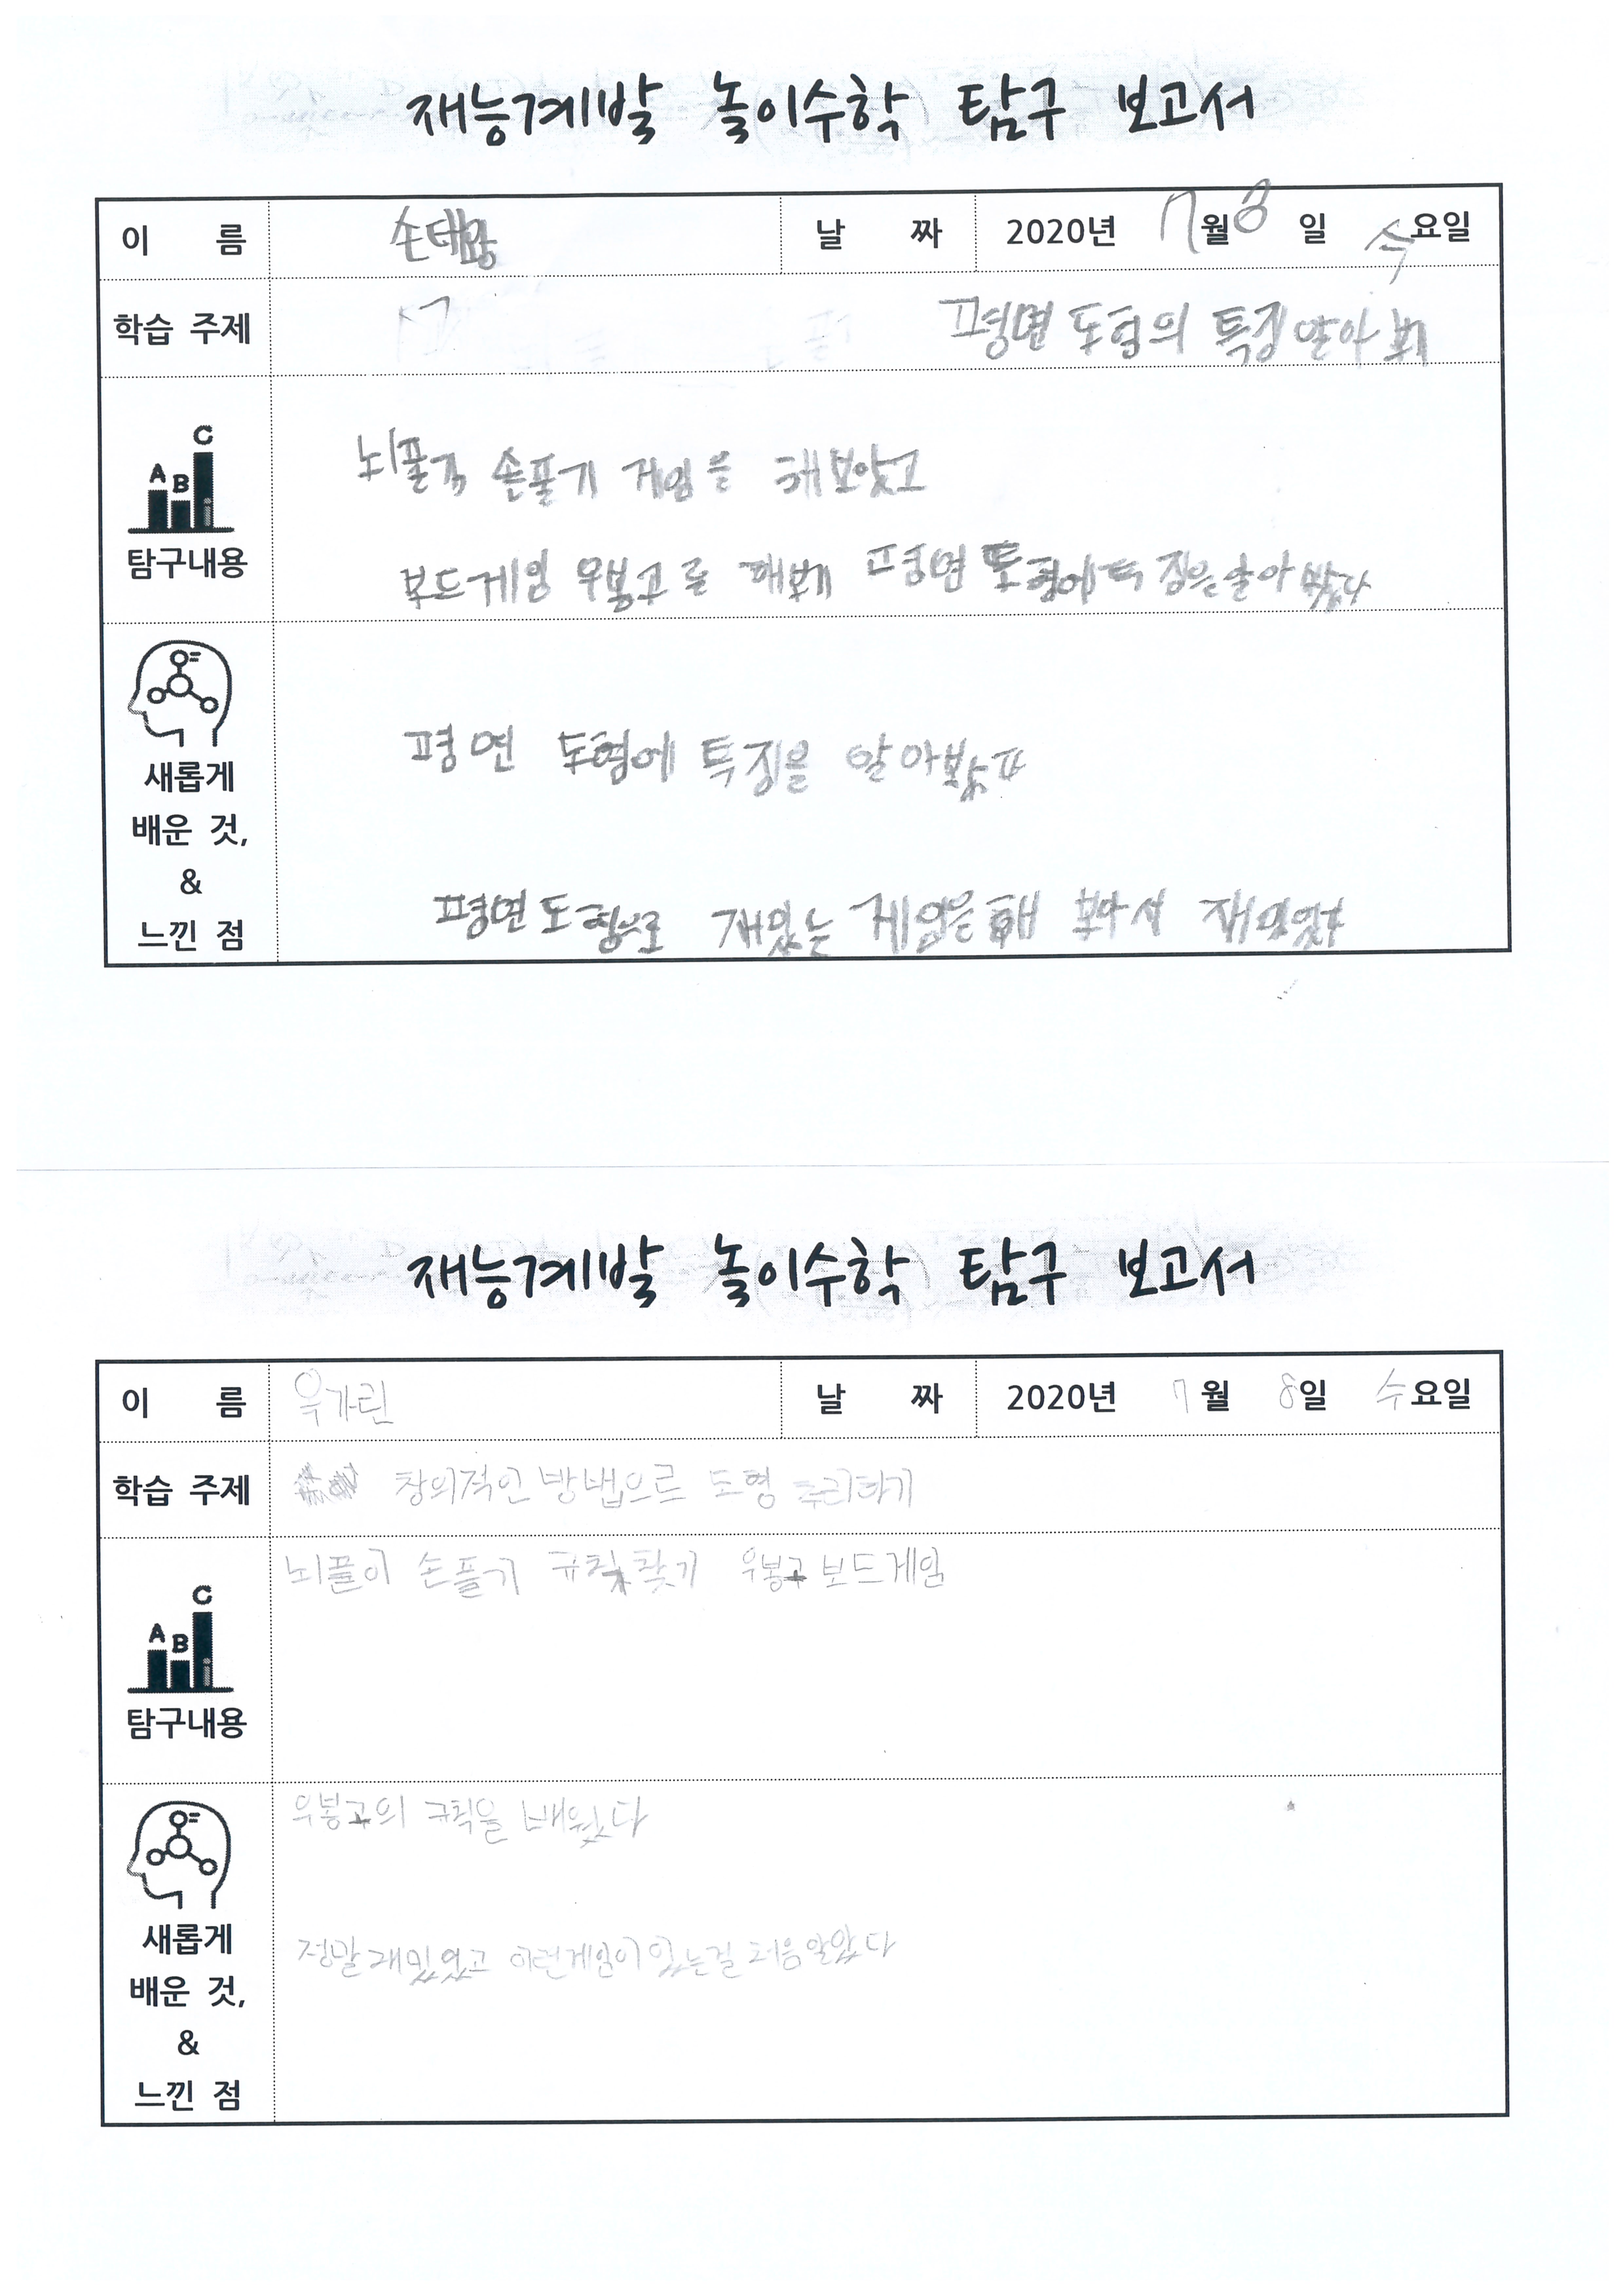 재능계발 놀이수학 탐구 보고서
이 름 손태랑 날 짜 2020년 7월 8일 수요일
학습 주제 평면 도형의 특징 알아보기
A B C
탐구내용
뇌풀기 손풀기 게임을 해보았고
보드게임 우봉고를 해보며 평면 도형에 특징을 알아 봤다
새롭게
배운 것,
&
느낀 점
평면 도형에 특징을 알아봤다
평면도형으로 재밌는 게임을 해 봐서 재밌었다
재능계발 놀이수학 탐구 보고서
이 름 우가린 날 짜 2020년 7월 8일 수요일
학습 주제 창의적인 방법으로 도형 추리하기
A B C
탐구내용
뇌풀이 손풀기 규칙찾기 우봉고 보드게임
새롭게
배운 것,
&
느낀 점
우봉고의 규칙을 배웠다
정말 재밌었고 이런게임이 있는걸 처음 알았다